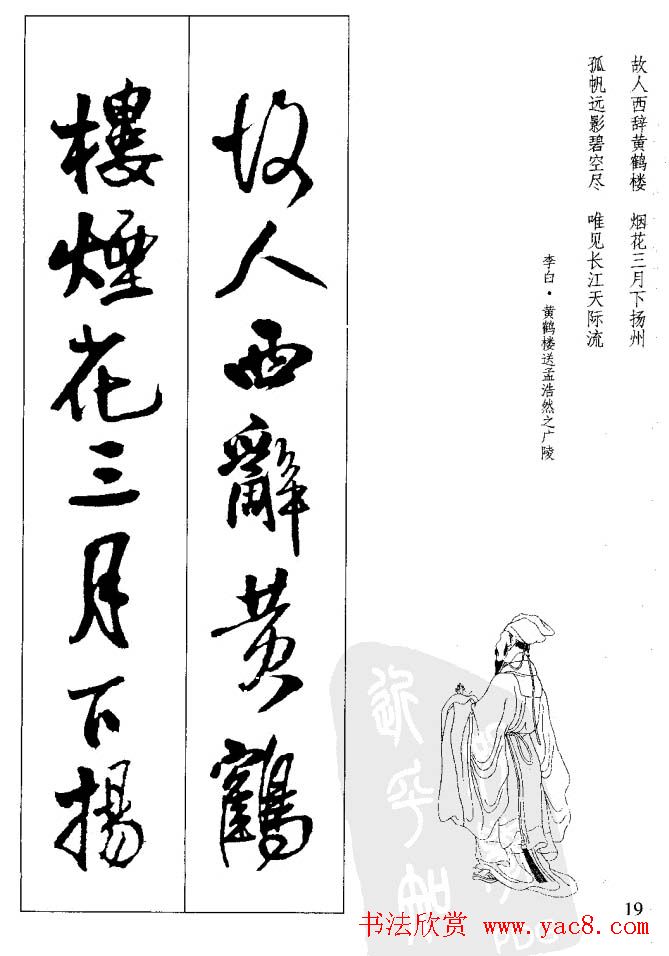 故人西辞黄鹤楼 烟花三月下扬州
孤帆远影碧空尽 唯见长江天际流
李白·黄鹤楼送孟浩然之广陵
故人西辭黄鶴
樓煙花三月下揚
19
书法欣赏 www.yac8.com